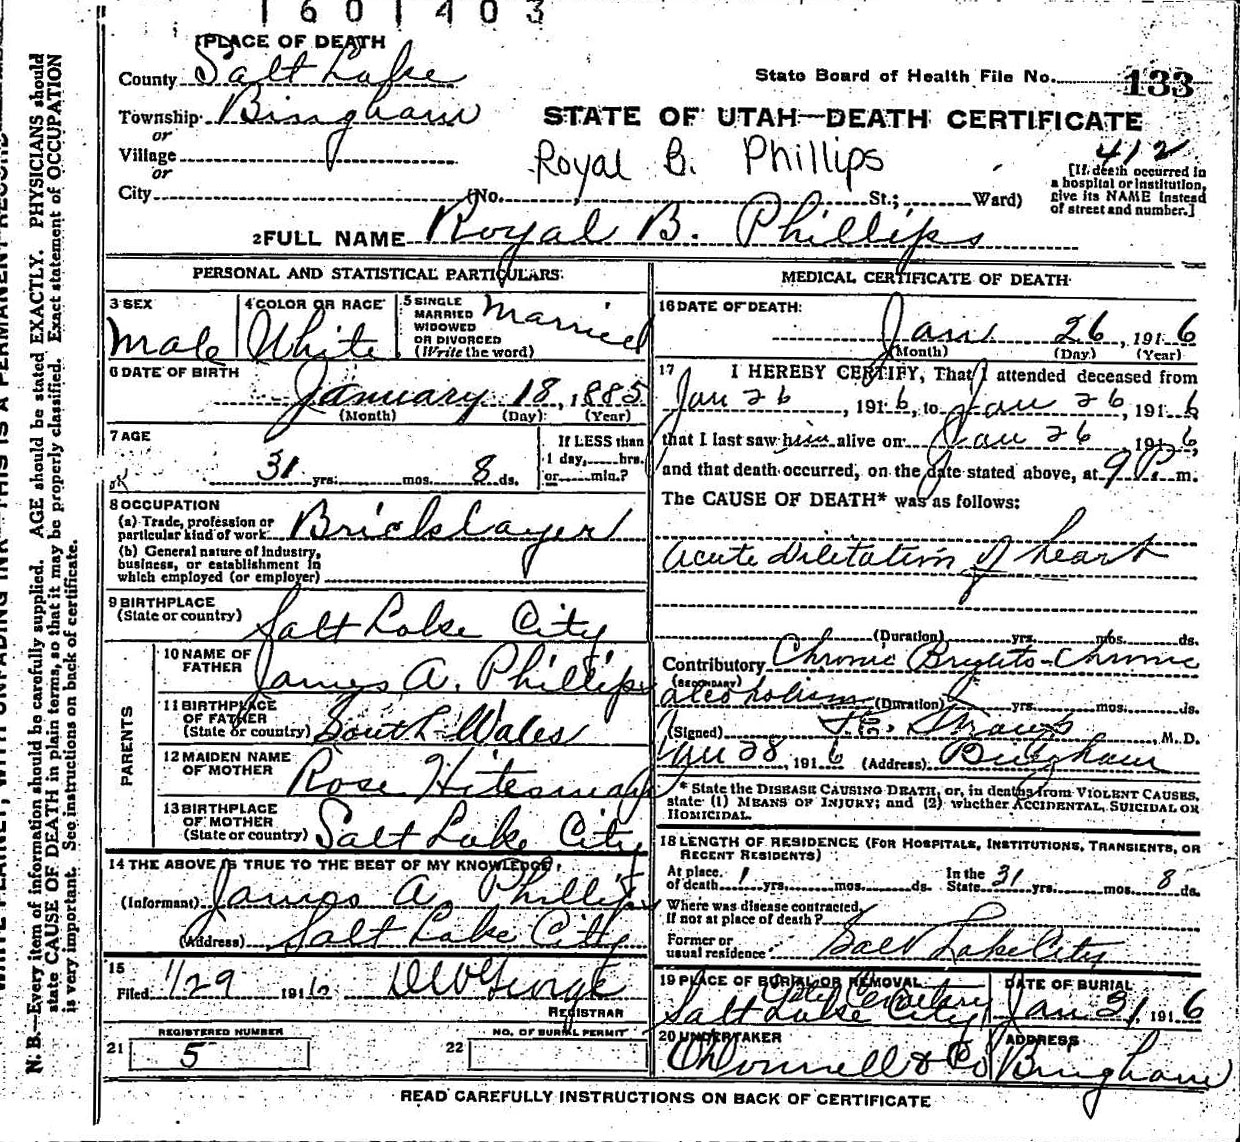 1601403
PLACE OF DEATH
County Salt Lake
State Board of Health File No. 133
Township Bingham
or
STATE OF UTAH—DEATH CERTIFICATE
Village
or
Royal B. Phillips
412
City (No. St.; Ward)
[If death occurred in
a hospital or institution,
give its NAME instead
of street and number.]
2 FULL NAME Royal B. Phillips
PERSONAL AND STATISTICAL PARTICULARS
3 SEX
Male
4 COLOR OR RACE
White
5 SINGLE
MARRIED
WIDOWED
OR DIVORCED
(Write the word)
Married
6 DATE OF BIRTH
January 18, 1885
(Month) (Day) (Year)
7 AGE
31 yrs. mos. 8 ds.
If LESS than
1 day, hrs.
or min.?
8 OCCUPATION
(a) Trade, profession or
particular kind of work Bricklayer
(b) General nature of industry,
business, or establishment in
which employed (or employer)
9 BIRTHPLACE
(State or country) Salt Lake City
PARENTS
10 NAME OF
FATHER James A. Phillips
11 BIRTHPLACE
OF FATHER
(State or country) South Wales
12 MAIDEN NAME
OF MOTHER Rose
13 BIRTHPLACE
OF MOTHER
(State or country) Salt Lake City
14 THE ABOVE IS TRUE TO THE BEST OF MY KNOWLEDGE
(Informant) James A. Phillips
(Address) Salt Lake City
15
Filed 1/29 1916
REGISTRAR
REGISTERED NUMBER
21 5
NO. OF BURIAL PERMIT
22
MEDICAL CERTIFICATE OF DEATH
16 DATE OF DEATH:
Jan 26, 1916
(Month) (Day) (Year)
17 I HEREBY CERTIFY, That I attended deceased from
Jan 26, 1916, to Jan 26, 1916
that I last saw him alive on Jan 26, 1916,
and that death occurred, on the date stated above, at 9 P. m.
The CAUSE OF DEATH* was as follows:
Acute Dilitation of heart
(Duration) yrs. mos. ds.
Contributory Chronic Brights - Chronic
(SECONDARY)
alcoholism (Duration) yrs. mos. ds.
(Signed) Straup, M. D.
Jan 28, 1916 (Address) Bingham
* State the DISEASE CAUSING DEATH, or, in deaths from VIOLENT CAUSES,
state (1) MEANS OF INJURY; and (2) whether ACCIDENTAL, SUICIDAL OR
HOMICIDAL.
18 LENGTH OF RESIDENCE (FOR HOSPITALS, INSTITUTIONS, TRANSIENTS, OR
RECENT RESIDENTS)
At place
of death 1 yrs. mos. ds. In the
State 31 yrs. mos. 8 ds.
Where was disease contracted,
If not at place of death?
Former or
usual residence Salt Lake City
19 PLACE OF BURIAL OR REMOVAL
City Cemetery
Salt Lake City
DATE OF BURIAL
Jan 31, 1916
20 UNDERTAKER
O'Donnell & Co
ADDRESS
Bingham
READ CAREFULLY INSTRUCTIONS ON BACK OF CERTIFICATE
N. B.—Every item of information should be carefully supplied. AGE should be stated EXACTLY. PHYSICIANS should
state CAUSE OF DEATH in plain terms, so that it may be properly classified. Exact statement of OCCUPATION
is very important. See instructions on back of certificate.